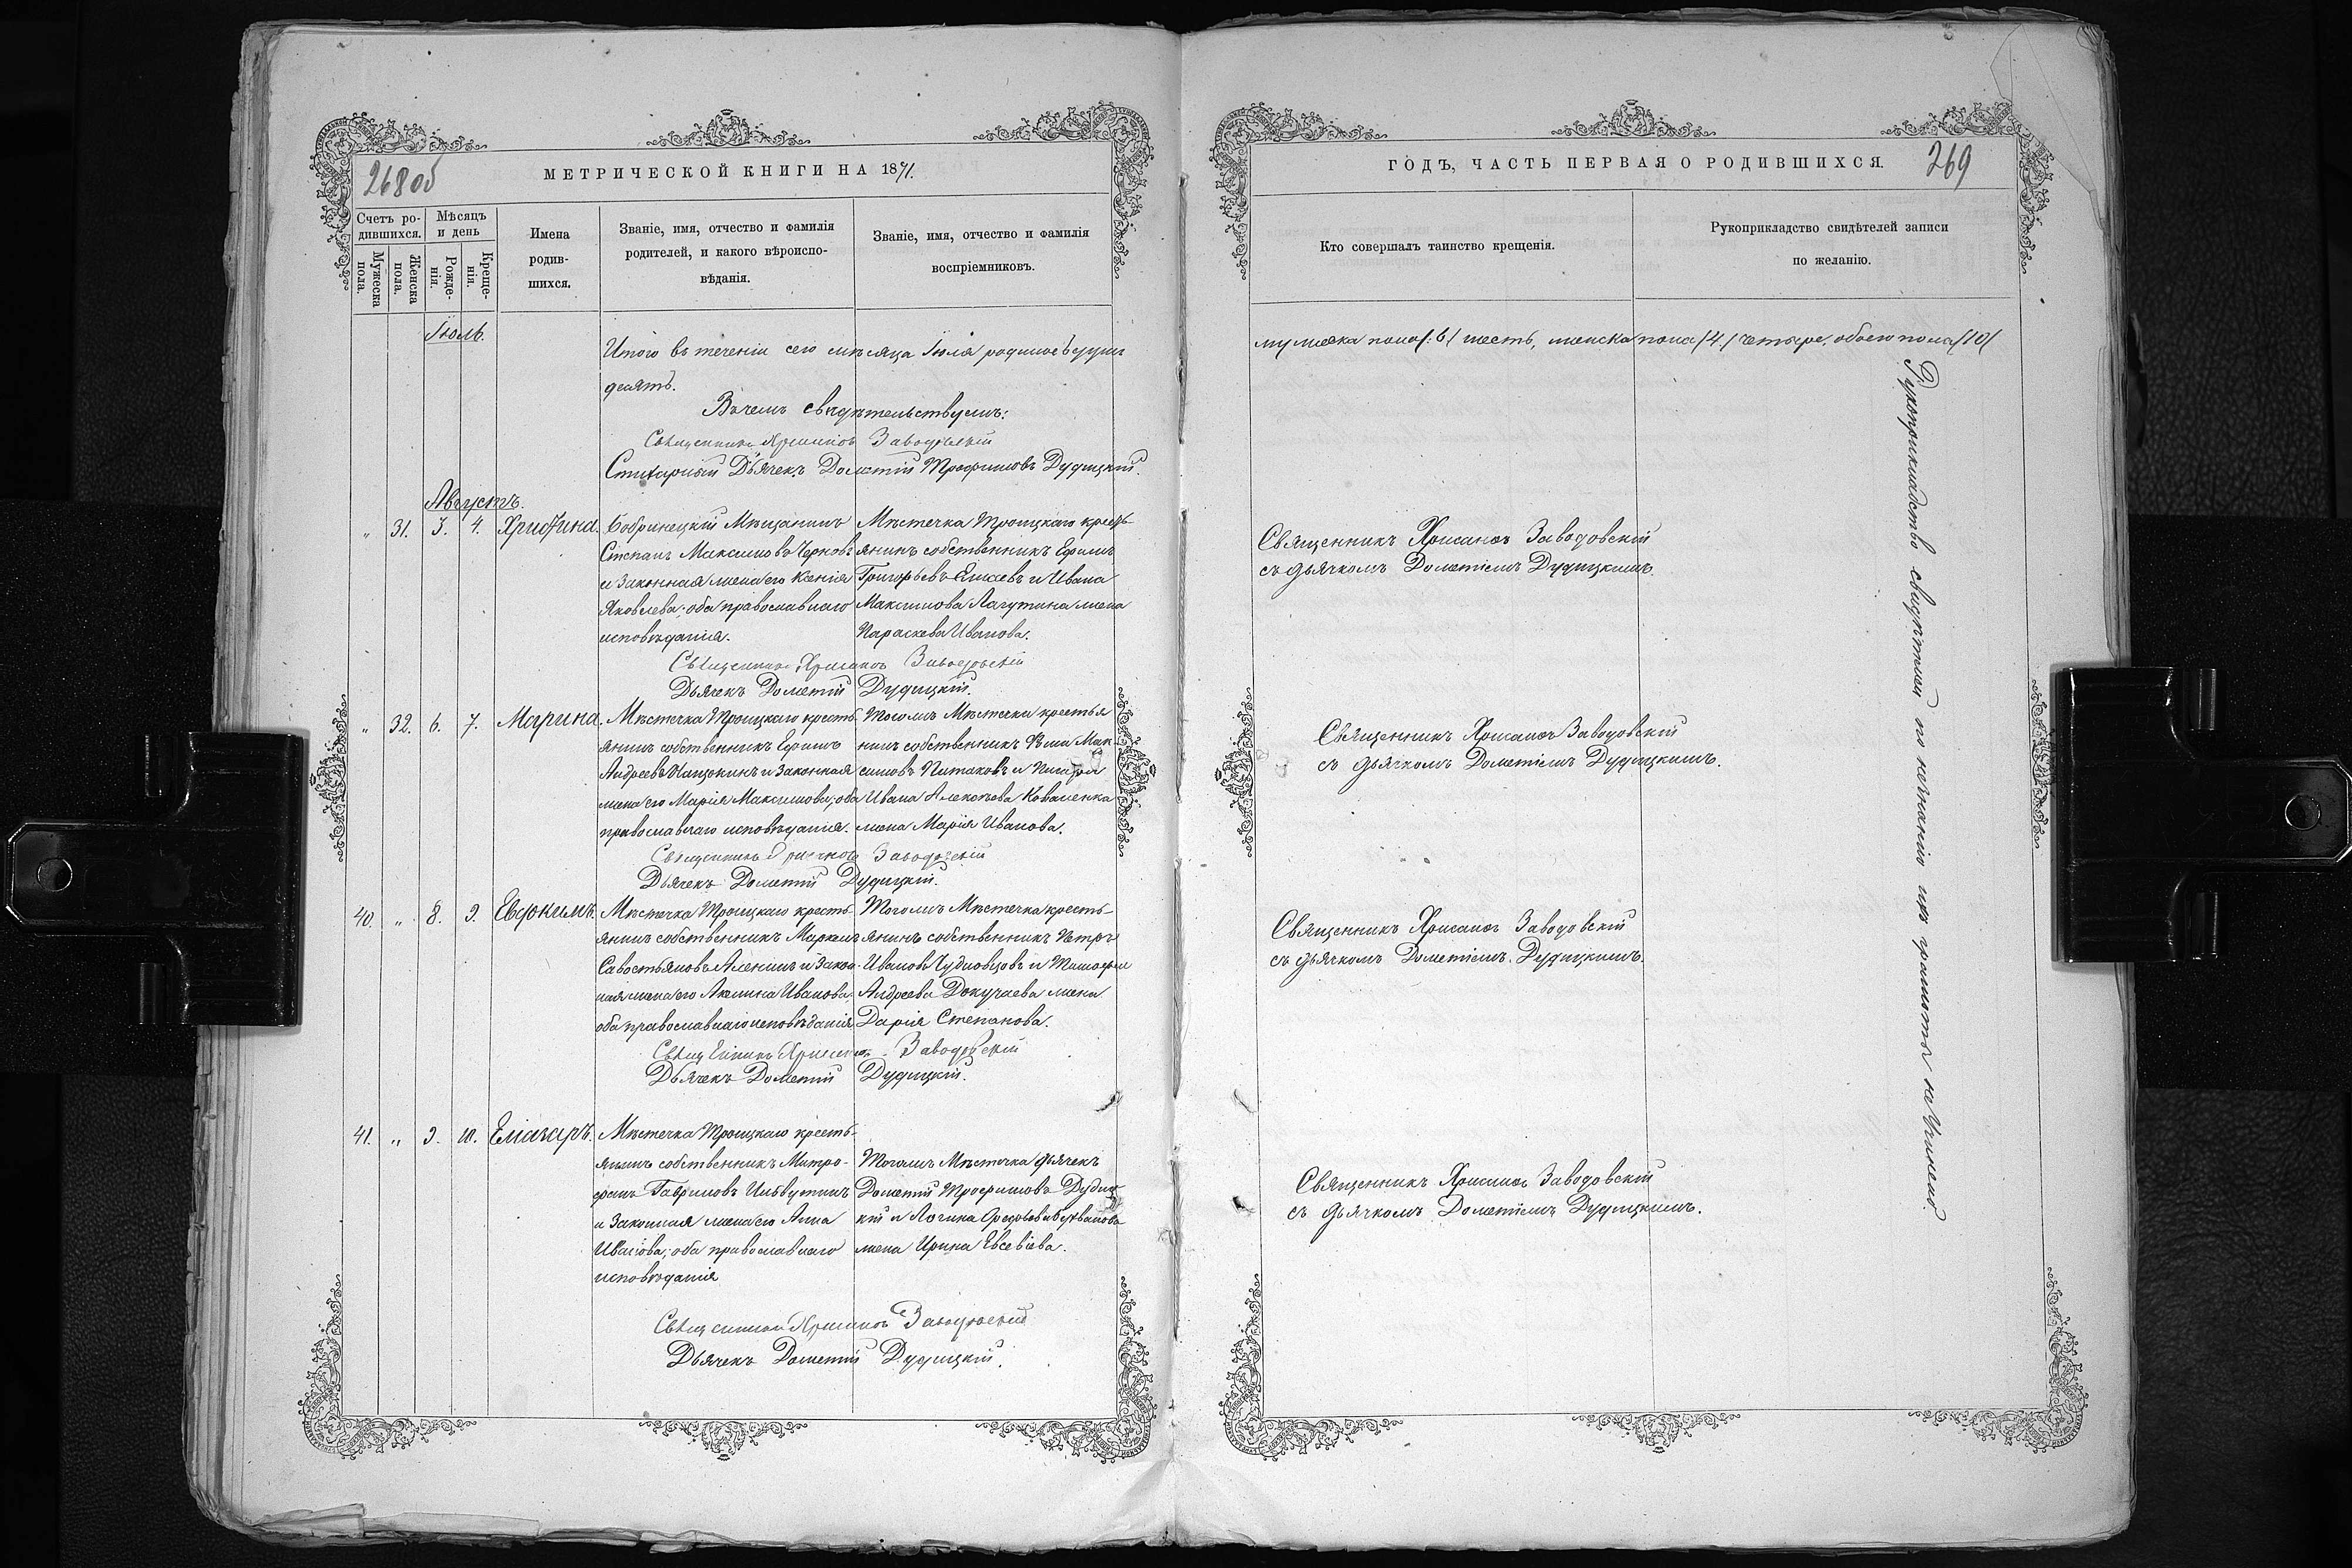 268об
МЕТРИЧЕСКОЙ КНИГИ НА 1871.
Счетъ ро-
дившихся.
Мужеска
пола.
Женска
пола.
Мѣсяцъ
и день
Рожде-
нія.
Креще-
нія.
Имена
родив-
шихся.
Званіе, имя, отчество и фамилія
родителей, и какого вѣроиспо-
вѣданія.
Званіе, имя, отчество и фамилія
воспріемниковъ.
Іюль.
Итого въ теченіи сего мѣсяца Іюля родилось душъ
десять.
Въ чемъ свидѣтельствуемъ:
Священникъ Хрисанѳъ Заводовскій
Стихарный Дьячекъ Дометій Трофимовъ Дудицкій.
Августъ.
„ 31. 3. 4. Христина.
Бобринецкій Мѣщанинъ
Степанъ Максимовъ Черновъ
и законная жена его Ксенія
Яковлева; оба православнаго
исповѣданія.
Мѣстечка Троицкаго кресть-
янинъ собственникъ Ефимъ
Григорьевъ и Ивана
Максимова Лагутина жена
Параскева Иванова.
Священникъ Хрисанѳъ Заводовскій
Дьячекъ Дометій Дудицкій.
„ 32. 6. 7. Марина.
Мѣстечка Троицкаго кресть-
янинъ собственникъ Ефимъ
Андреевъ и законная
жена его Марія Максимова; оба
православнаго исповѣданія.
Тогожъ Мѣстечка крестья
нинъ собственникъ Мак-
симовъ и
Ивана Алексѣева Коваленка
жена Марія Иванова.
Священникъ Хрисанѳъ Заводовскій
Дьячекъ Дометій Дудицкій.
40. „ 8. 9. Евдокимъ.
Мѣстечка Троицкаго кресть-
янинъ собственникъ Маркелъ
Савостьяновъ Аленинъ и закон-
ная жена его Акилина Иванова;
оба православнаго исповѣданія
Тогожъ Мѣстечка кресть-
янинъ собственникъ Петръ
Ивановъ Чудновцовъ и Тимофея
Андреева Докучаева жена
Дарія Степанова.
Священникъ Хрисанѳъ Заводовскій
Дьячекъ Дометій Дудицкій.
41. „ 9. 10. Еліазаръ.
Мѣстечка Троицкаго кресть-
янинъ собственникъ Митро-
фанъ Гавриловъ
и законная жена его Анна
Иванова; оба православнаго
исповѣданія
Тогожъ Мѣстечка дьячекъ
Дометій Трофимовъ Дудиц-
кій и Логина
жена Ирина Евсевіева.
Священникъ Хрисанѳъ Заводовскій
Дьячекъ Дометій Дудицкій.
ГОДЪ, ЧАСТЬ ПЕРВАЯ О РОДИВШИХСЯ.
269
Кто совершалъ таинство крещенія.
Рукоприкладство свидѣтелей записи
по желанію.
мужеска пола /6/ шесть, женска пола /4/ четыре, обоего пола /10/
Священникъ Хрисанѳъ Заводовскій
съ дьячкомъ Дометіемъ Дудицкимъ.
Священникъ Хрисанѳъ Заводовскій
съ дьячкомъ Дометіемъ Дудицкимъ.
Священникъ Хрисанѳъ Заводовскій
съ дьячкомъ Дометіемъ Дудицкимъ.
Священникъ Хрисанѳъ Заводовскій
съ дьячкомъ Дометіемъ Дудицкимъ.
Рукоприкладство свидѣтелей по незнанію ихъ грамоты не учинено.